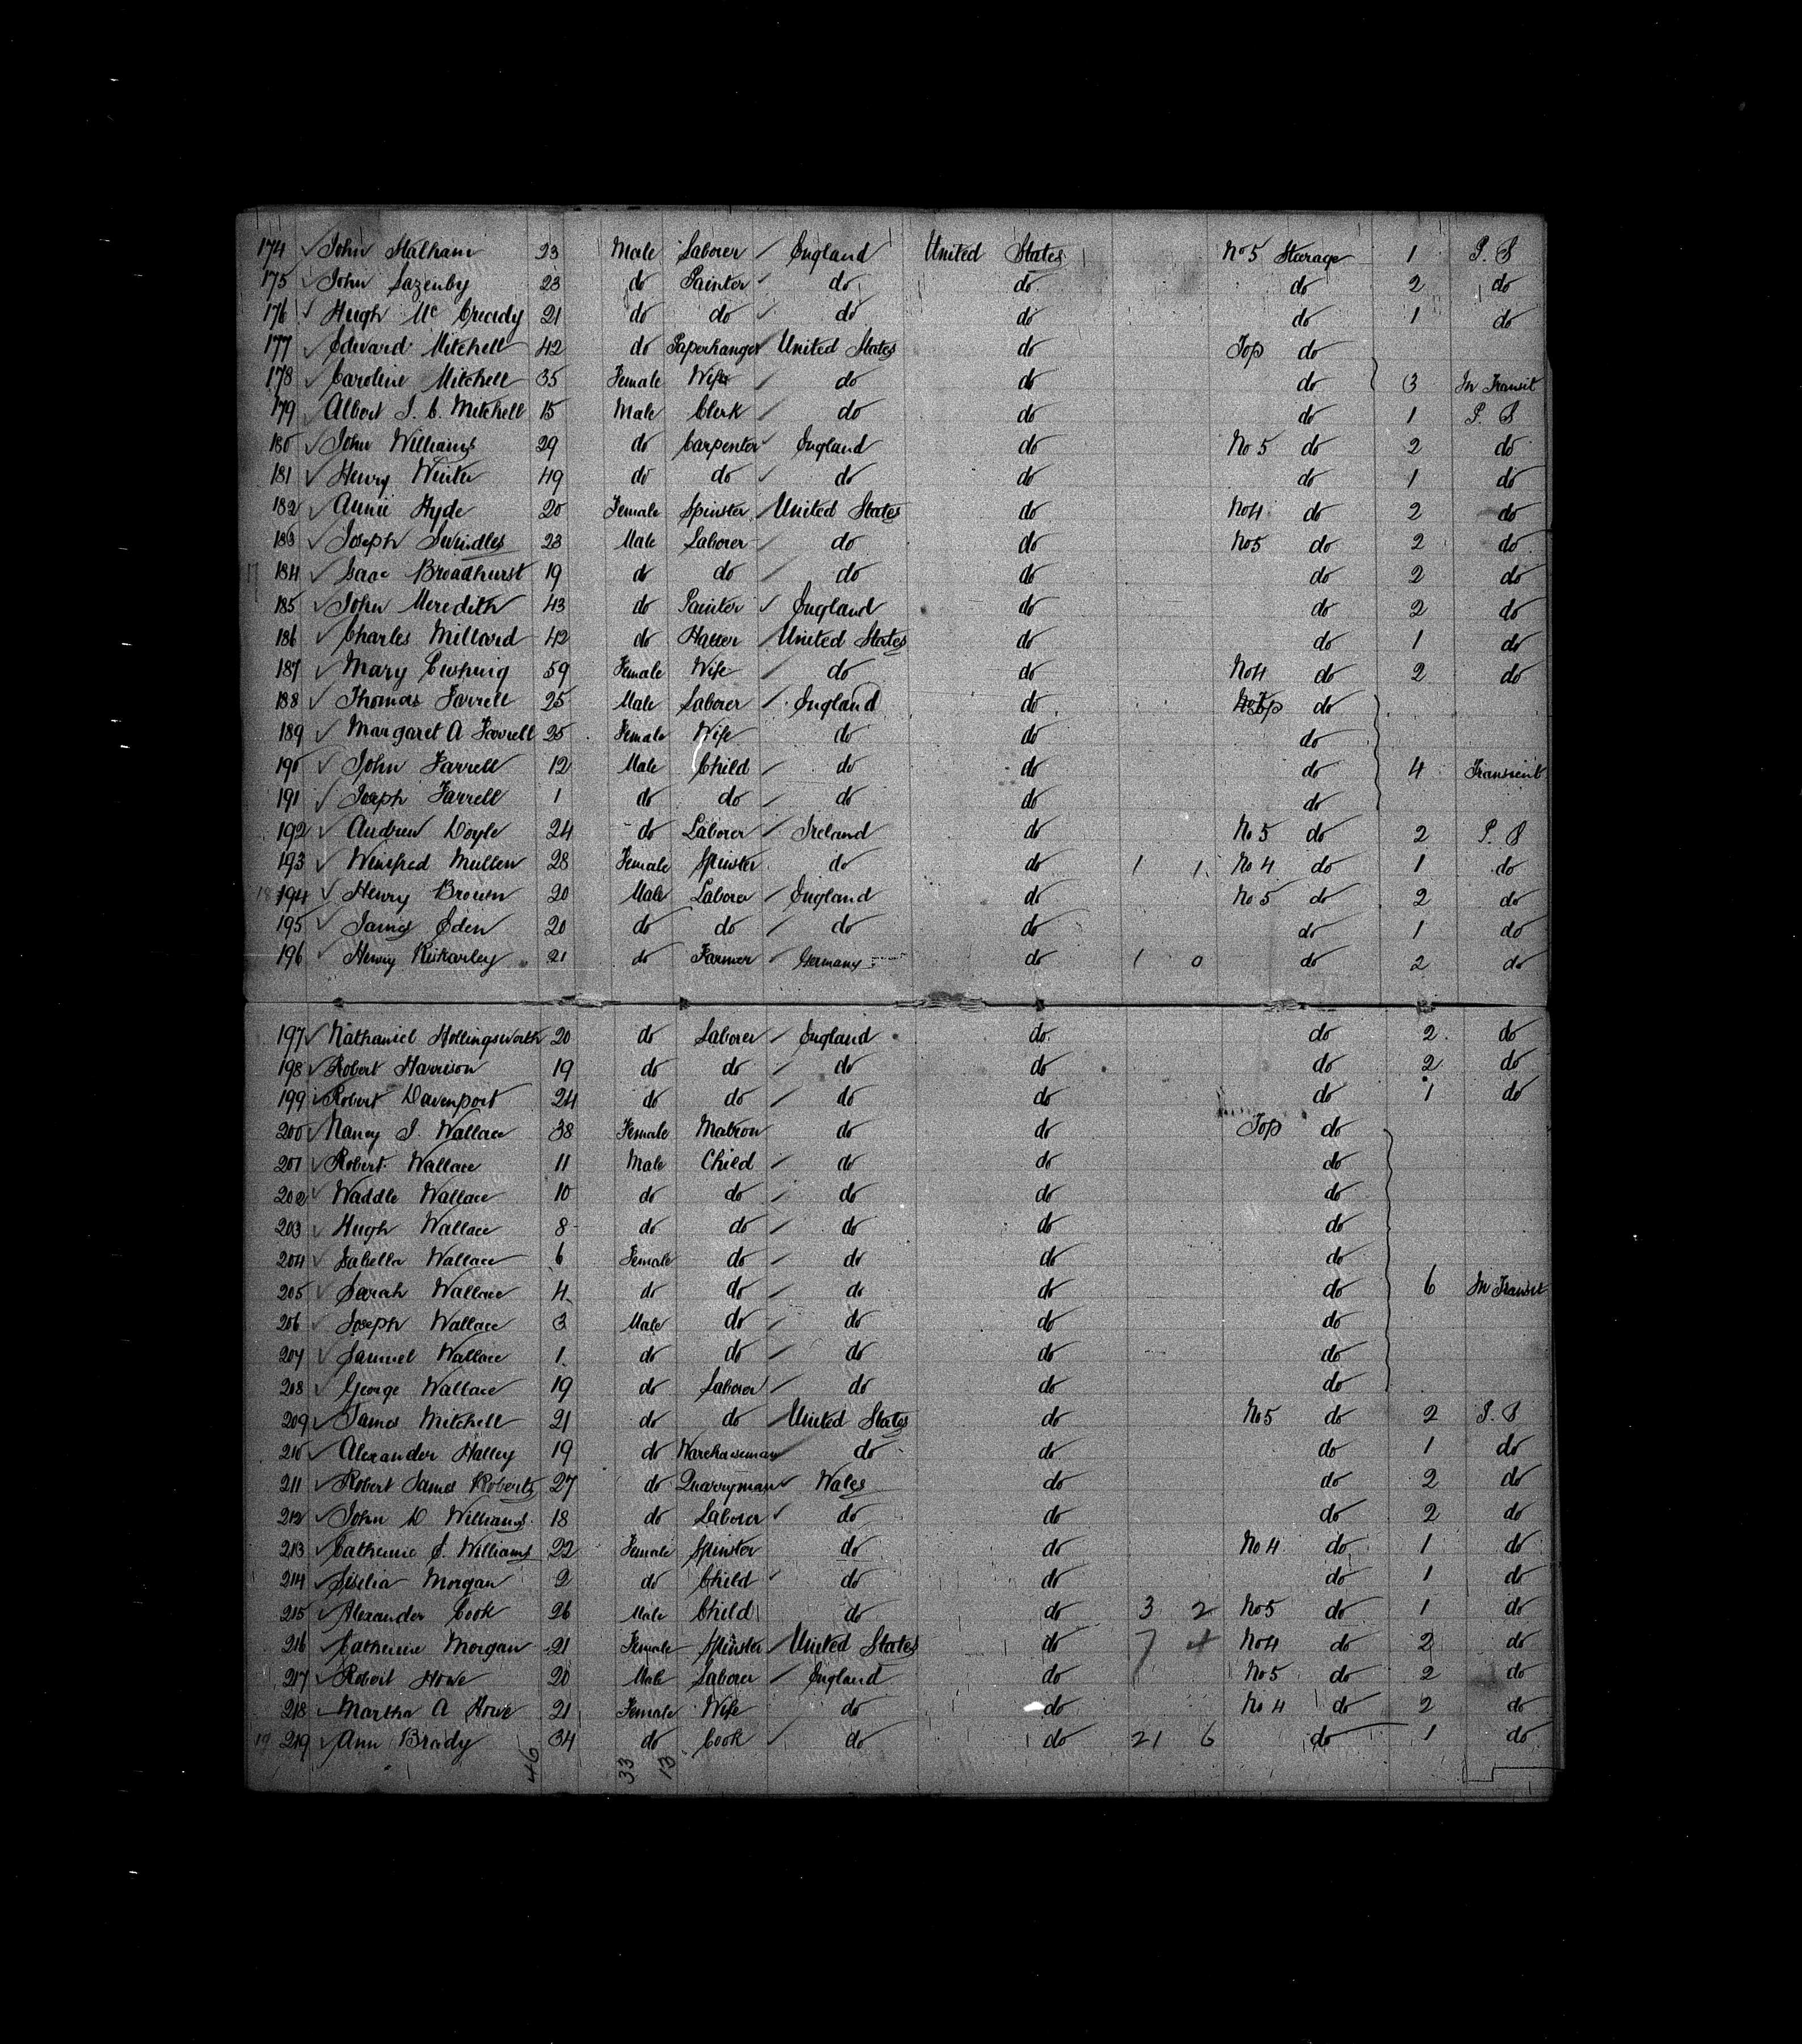 174 John Statham 23 Male Laborer England United States No 5 Starage 1 P. S
175 John Lazenby 23 do Painter do do do 2 do
176 Hugh Mc Cready 21 do do do do do 1 do
177 Edward Mitchell 42 do Paperhanger United States do Top do
178 Caroline Mitchell 35 Female Wife do do do 3 In Transit
179 Albert J. C. Mitchell 15 Male Clerk do do do 1 P. S
180 John Williams 29 do Carpenter England do No 5 do 2 do
181 Henry Winter 49 do do do do do 1 do
182 Annie Hyde 20 Female Spinster United States do No4 do 2 do
183 Joseph Swindles 23 Male Laborer do do No5 do 2 do
184 Isaac Broadhurst 19 do do do do do 2 do
185 John Meredith 43 do Painter England do do 2 do
186 Charles Millard 42 do Hatter United States do do 1 do
187 Mary 59 Female Wife do do No4 do 2 do
188 Thomas Farrell 25 Male Laborer England do Top do
189 Margaret A Farrell 25 Female Wife do do do
190 John Farrell 12 Male Child do do do 4 Transient
191 Joseph Farrell 1 do do do do do
192 Andrew Doyle 24 do Laborer Ireland do No 5 do 2 P. S
193 Winifred Mullen 28 Female Spinster do do 1 1 No 4 do 1 do
194 Henry Brown 20 Male Laborer England do No 5 do 2 do
195 James Eden 20 do do do do do 1 do
196 Henry 21 do Farmer Germany do 1 0 do 2 do
197 Nathaniel Hollingsworth 20 do Laborer England do do 2 do
198 Robert Harrison 19 do do do do do 2 do
199 Robert Davenport 24 do do do do do 1 do
200 Nancy J. Wallace 38 Female Matron do do Top do
201 Robert Wallace 11 Male Child do do do
202 Waddle Wallace 10 do do do do do
203 Hugh Wallace 8 do do do do do
204 Isabella Wallace 6 Female do do do do
205 Sarah Wallace 4 do do do do do 6 In Transit
206 Joseph Wallace 3 Male do do do do
207 Samuel Wallace 1 do do do do do
208 George Wallace 19 do Laborer do do do
209 James Mitchell 21 do do United States do No5 do 2 P. S
210 Alexander Halley 19 do Warehouseman do do do 1 do
211 Robert James Roberts 27 do Quarryman Wales do do 2 do
212 John D Williams 18 do Laborer do do do 2 do
213 Catherine S. Williams 22 Female Spinster do do No 4 do 1 do
214 Morgan 2 do Child do do do 1 do
215 Alexander Cook 26 Male Child do do 3 2 No5 do 1 do
216 Catherine Morgan 21 Female Spinster United States do 7 4 No4 do 2 do
217 Robert Howe 20 Male Laborer England do No5 do 2 do
218 Martha A Howe 21 Female Wife do do No 4 do 2 do
219 Ann Brady 34 do Cook do do 21 6 do 1 do
46 33 13